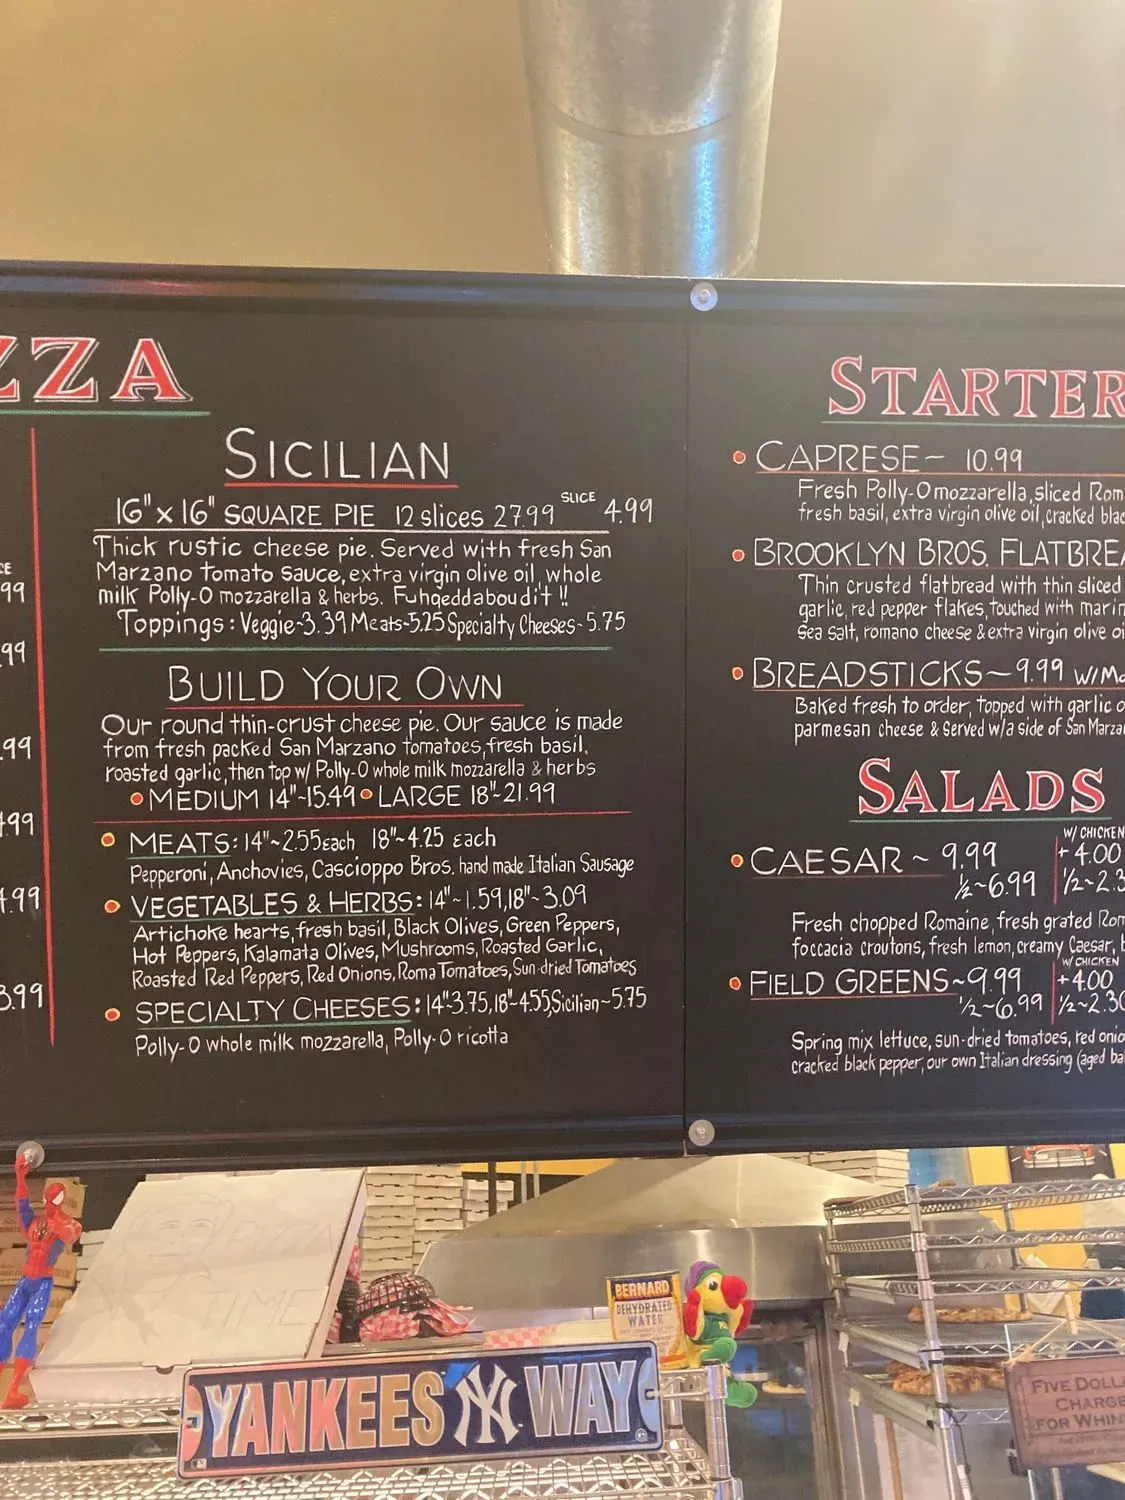 ZZA
SICILIAN
16" x 16" SQUARE PIE 12 slices 27.99 SLICE 4.99
Thick rustic cheese pie. Served with fresh San
Marzano tomato sauce, extra virgin olive oil, whole
milk Polly-O mozzarella & herbs. Fuhgeddaboudit !!
Toppings: Veggie~3.39 Meats~5.25 Specialty Cheeses~5.75
BUILD YOUR OWN
Our round thin-crust cheese pie. Our sauce is made
from fresh packed San Marzano tomatoes, fresh basil,
roasted garlic, then top w/ Polly-O whole milk mozzarella & herbs
MEDIUM 14"~15.49 LARGE 18"~21.99
MEATS: 14"~2.55 each 18"~4.25 each
Pepperoni, Anchovies, Cascioppo Bros. hand made Italian Sausage
VEGETABLES & HERBS: 14"~1.59, 18"~3.09
Artichoke hearts, fresh basil, Black Olives, Green Peppers,
Hot Peppers, Kalamata Olives, Mushrooms, Roasted Garlic,
Roasted Red Peppers, Red Onions, Roma Tomatoes, Sun-dried Tomatoes
SPECIALTY CHEESES: 14"~3.75, 18"~4.55, Sicilian~5.75
Polly-O whole milk mozzarella, Polly-O ricotta
99
.99
.99
.99
.99
3.99
STARTER
CAPRESE~ 10.99
Fresh Polly-O mozzarella, sliced
fresh basil, extra virgin olive oil, cracked
BROOKLYN BROS. FLATBREA
Thin crusted flatbread with thin sliced
garlic, red pepper flakes, touched with
Sea salt, romano cheese & extra virgin olive
BREADSTICKS~9.99
Baked fresh to order, topped with garlic
parmesan cheese & served w/a side of San
SALADS
CAESAR ~ 9.99 W/ CHICKEN +4.00
½~6.99 ½~2.3
Fresh chopped Romaine, fresh grated
foccacia croutons, fresh lemon, creamy Caesar,
FIELD GREENS~9.99 W/ CHICKEN +4.00
½~6.99 ½~2.30
Spring mix lettuce, sun-dried tomatoes, red
cracked black pepper, our own Italian dressing (aged
BERNARD
DEHYDRATED
WATER
YANKEES NY WAY
FIVE DOLLA
CHARGE
FOR WHIN